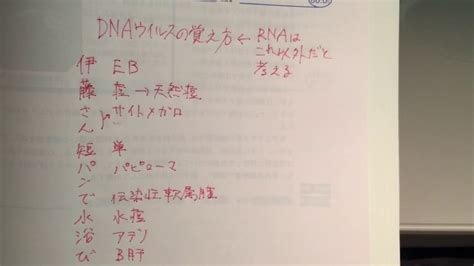 DNAウイルスの覚え方 ← RNAは
これ以外だと
考える
伊 EB
藤 痘→天然痘
さ サイトメガロ
ん
短 単
パ パピローマ
ン
で 伝染性軟属腫
水 水痘
浴 アデノ
び B肝